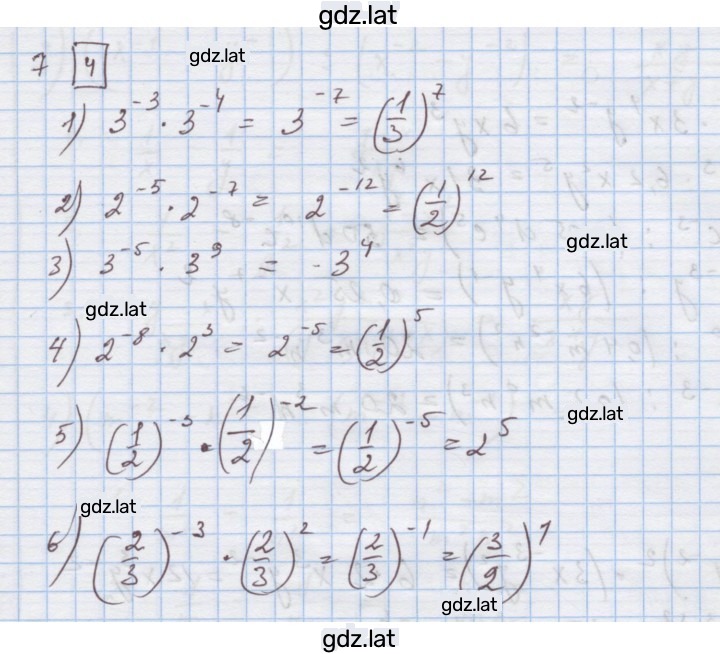 gdz.lat
7 4 gdz.lat
1) 3⁻³ · 3⁻⁴ = 3⁻⁷ = (1/3)⁷
2) 2⁻⁵ · 2⁻⁷ = 2⁻¹² = (1/2)¹²
gdz.lat
3) 3⁻⁵ · 3⁹ = 3⁴
gdz.lat
4) 2⁻⁸ · 2³ = 2⁻⁵ = (1/2)⁵
gdz.lat
5) (1/2)⁻³ · (1/2)⁻² = (1/2)⁻⁵ = 2⁵
gdz.lat
6) (2/3)⁻³ · (2/3)² = (2/3)⁻¹ = (3/2)¹
gdz.lat
gdz.lat